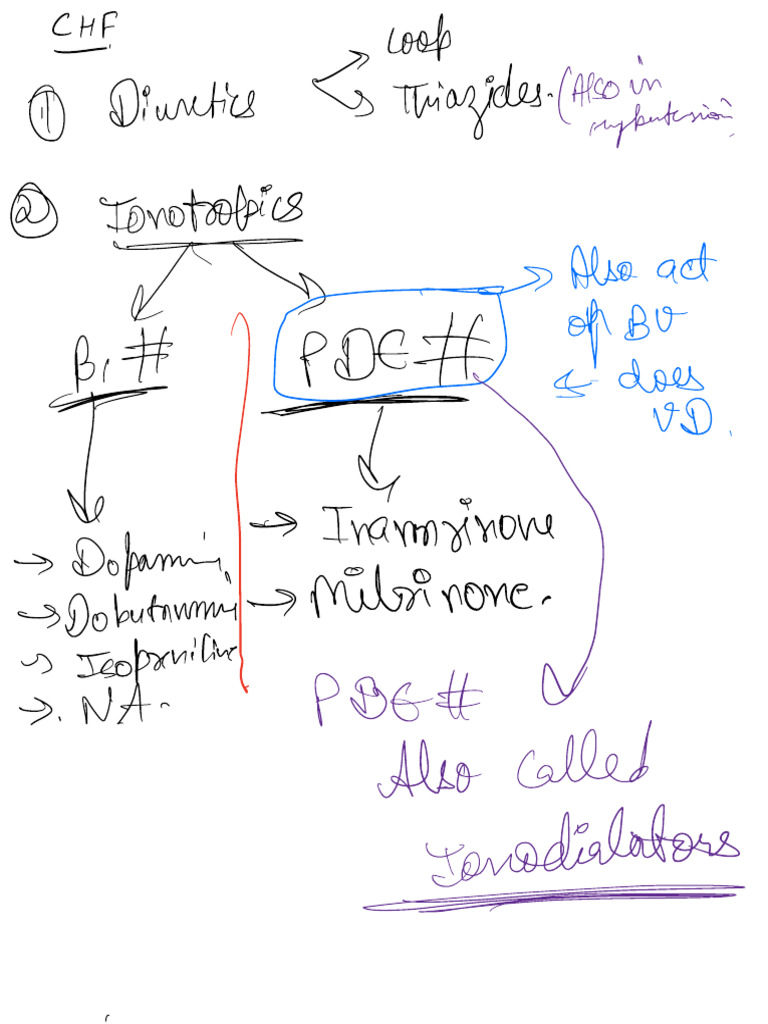 CHF
① Diuretics
Loop
Thiazides. (Also in
hypertension
② Ionotropics
B₁ #
PDE #
Also act
on BV
& does
VD.
→ Dopamine
→ Dobutamine
→ Isopreniline
→ NA.
→ Inamrinone
→ Milrinone.
PDE #
Also called
Ionodialators